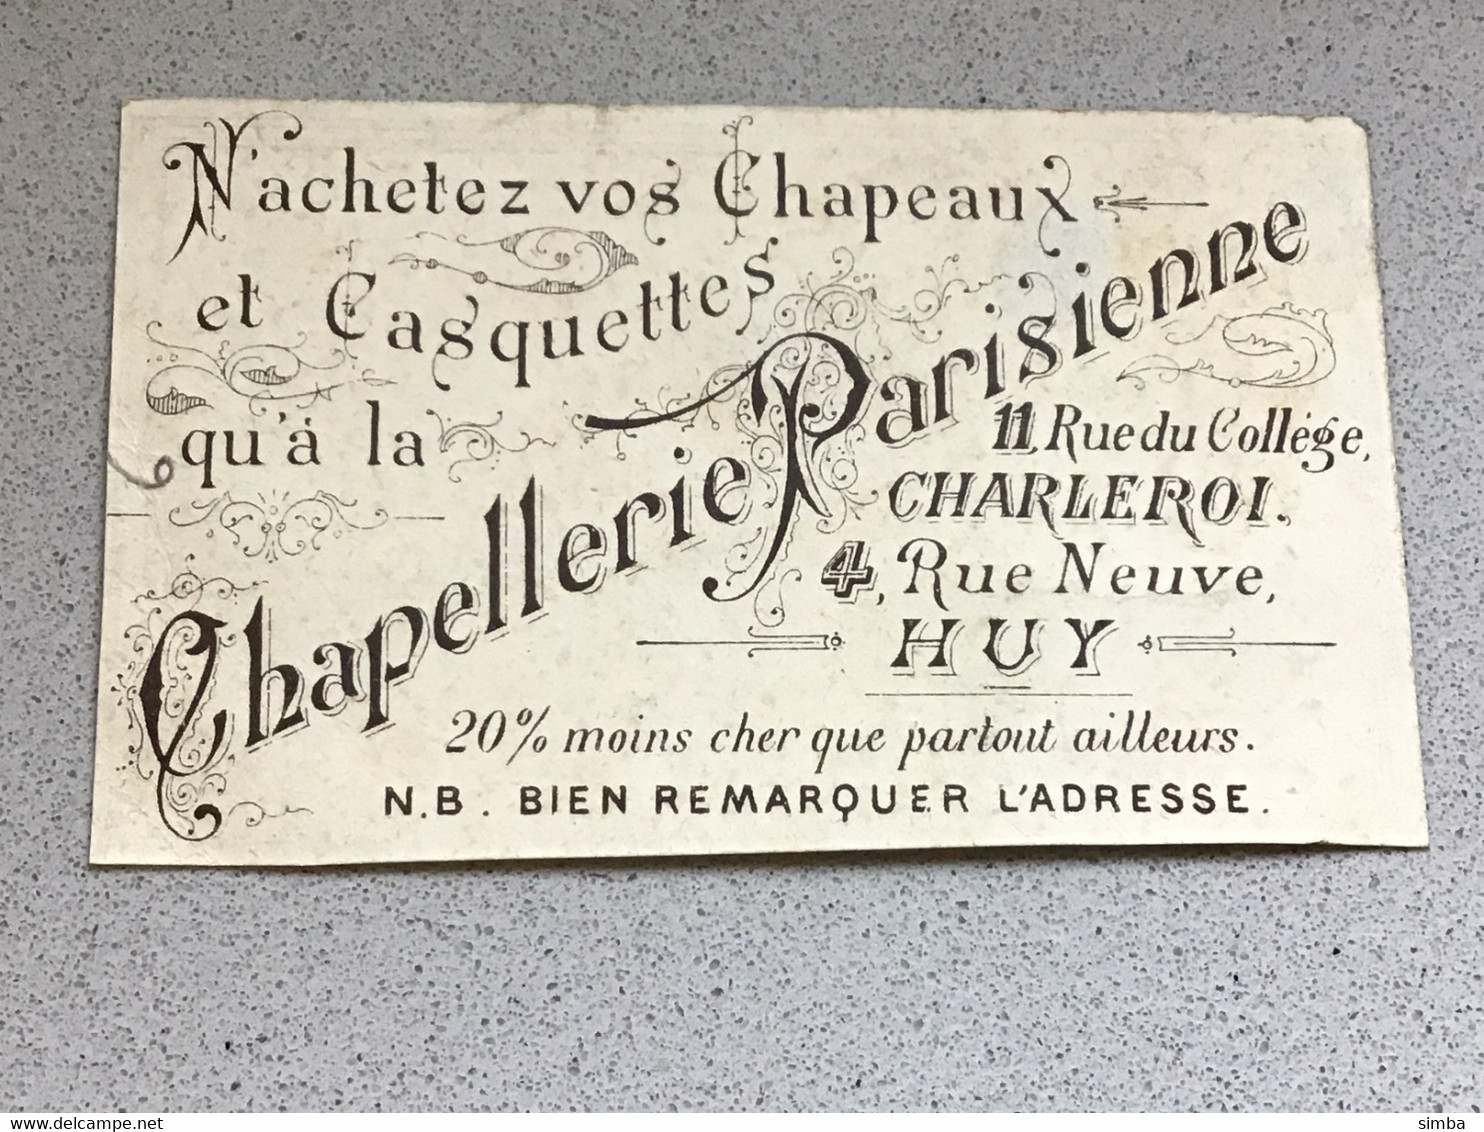 N'achetez vos Chapeaux
et Casquettes
qu'à la
Chapellerie Parisienne
11, Rue du Collége,
CHARLEROI.
4, Rue Neuve,
HUY
20% moins cher que partout ailleurs.
N.B. BIEN REMARQUER L'ADRESSE.
www.delcampe.net
simba